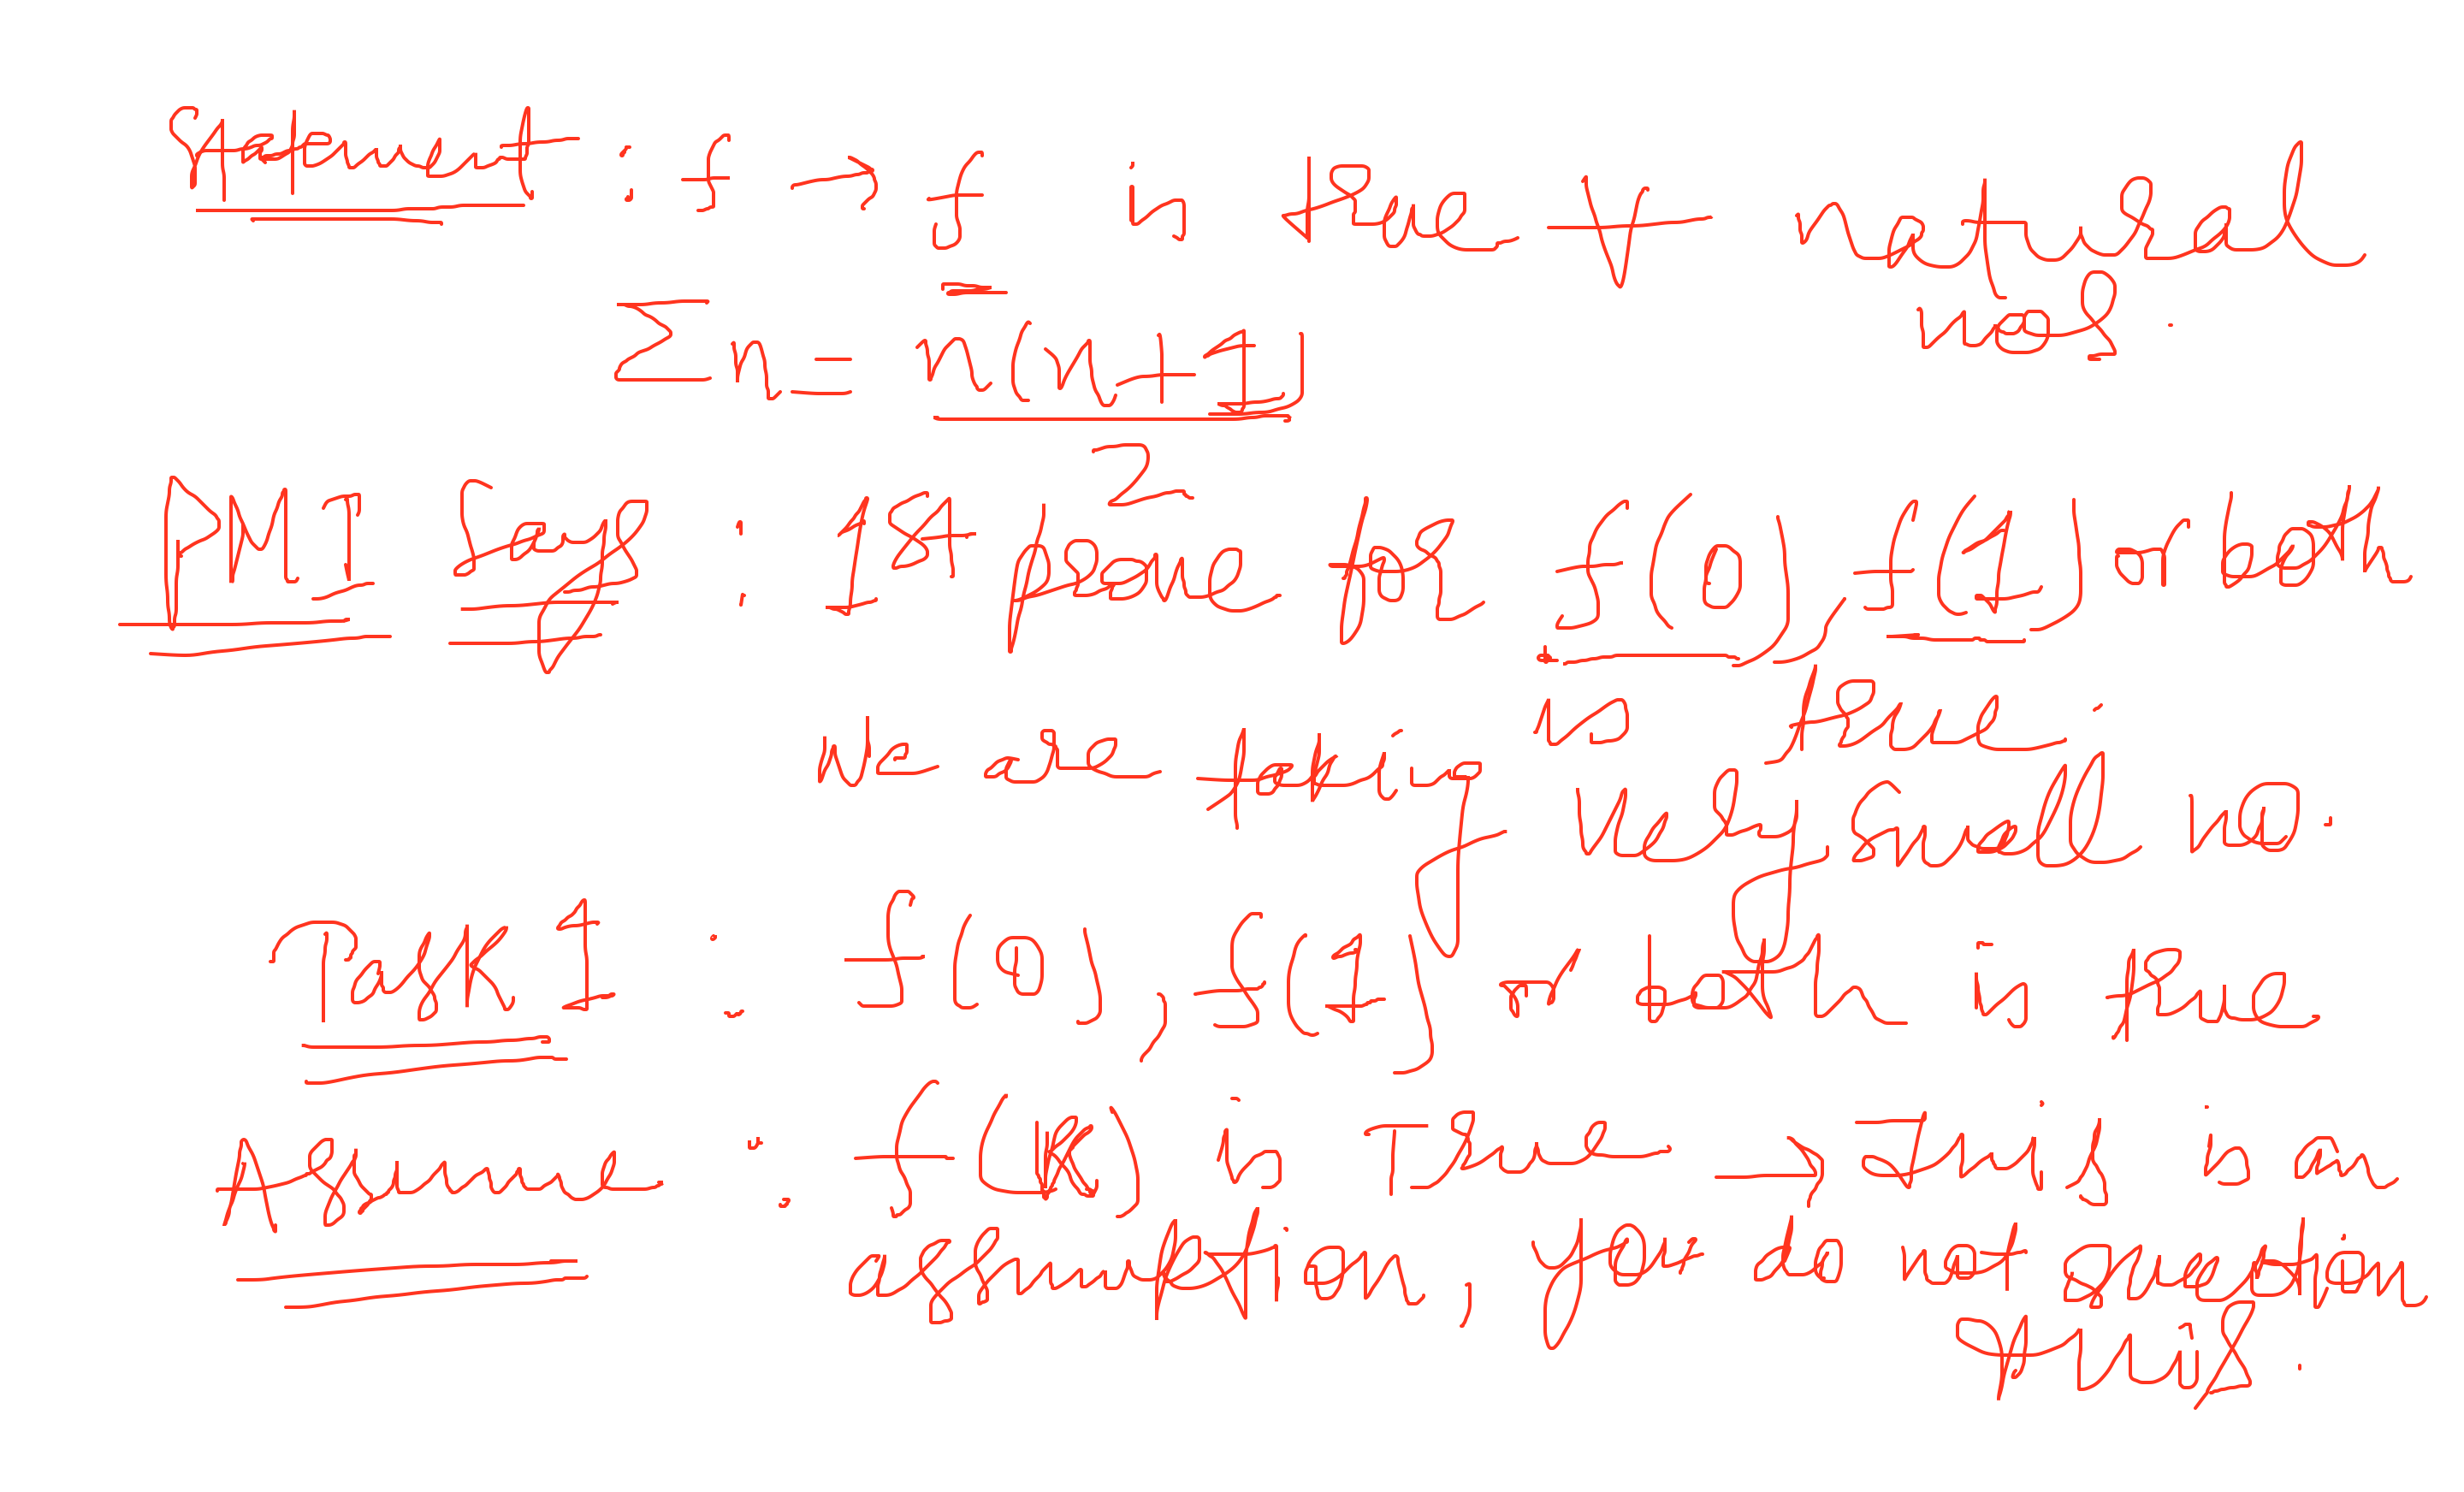 Statement : f → f is true ∀ natural
nos.
Σn = n(n+1)
2
PMI says : 1st prove for f(0), f(1) or both
is true.
We are taking very small no.
Part 1 : f(0), f(1) or both is true
Assume : f(K) is True → This is an
assumption, you do not question
this.